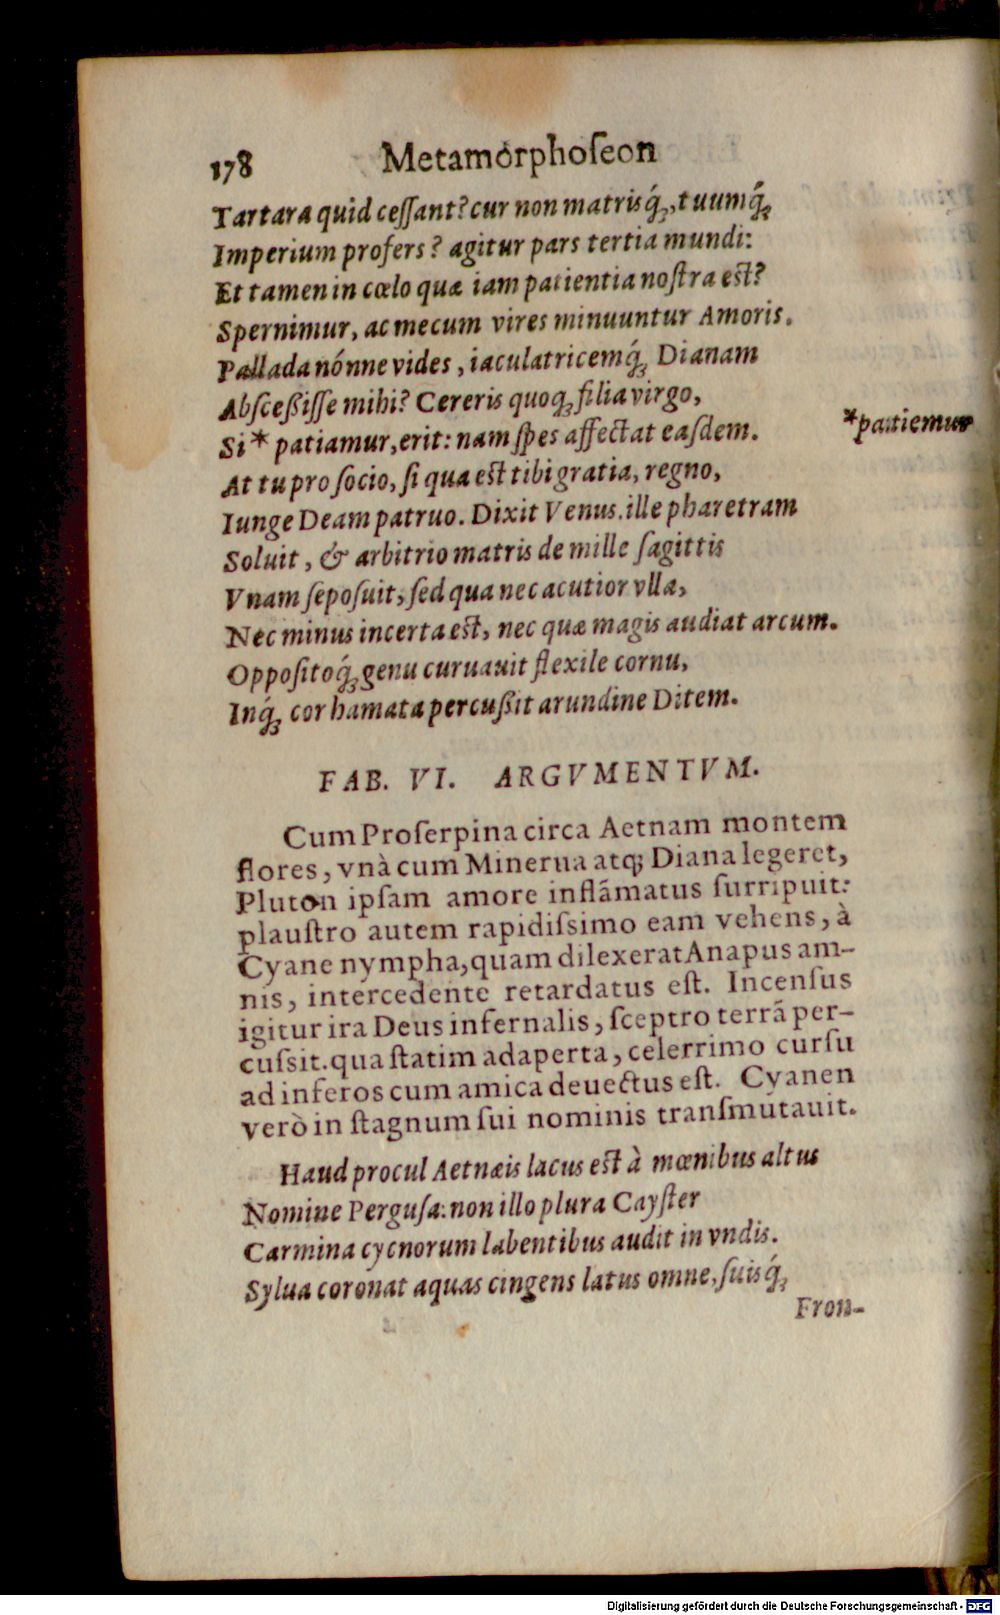 178 Metamorphoſeon
Tartara quid ceſſant? cur non matrisq́;, tuumq́;
Imperium profers? agitur pars tertia mundi:
Et tamen in cœlo quæ iam patientia noſtra eſt?
Spernimur, ac mecum vires minuuntur Amoris.
Pallada nónne vides, iaculatricemq́; Dianam
Abſceßiſſe mihi? Cereris quoq; filia virgo,
Si * patiamur, erit: nam ſpes affectat eaſdem. *patiemur
At tu pro ſocio, ſi qua eſt tibi gratia, regno,
Iunge Deam patruo. Dixit Venus. ille pharetram
Soluit, & arbitrio matris de mille ſagittis
Vnam ſepoſuit, ſed qua nec acutior vlla,
Nec minus incerta eſt, nec quæ magis audiat arcum.
Oppoſitoq́; genu curuauit flexile cornu,
Inq́; cor hamata percußit arundine Ditem.
FAB. VI. ARGVMENTVM.
Cum Proſerpina circa Aetnam montem
flores, vnà cum Minerua atq; Diana legeret,
Pluton ipſam amore inflãmatus ſurripuit:
plauſtro autem rapidiſsimo eam vehens, à
Cyane nympha, quam dilexerat Anapus am-
nis, intercedente retardatus eſt. Incenſus
igitur ira Deus infernalis, ſceptro terrã per-
cuſsit. qua ſtatim adaperta, celerrimo curſu
ad inferos cum amica deuectus eſt. Cyanen
verò in ſtagnum ſui nominis tranſmutauit.
Haud procul Aetnæis lacus eſt à mœnibus altus
Nomine Perguſa: non illo plura Cayſter
Carmina cycnorum labentibus audit in vndis.
Sylua coronat aquas cingens latus omne, ſuisq́;
Fron-
Digitalisierung gefördert durch die Deutsche Forschungsgemeinschaft - DFG